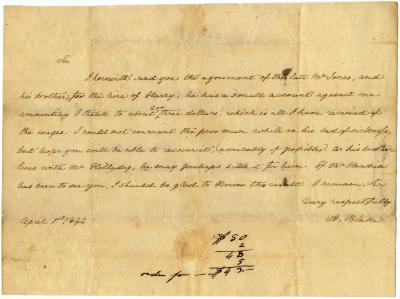 Sir
I herewith send you the agreement of the late Mr Jones, and
his brother, for the hire of Harry, he has a small account against me
amounting I think to about three dollars, which is all I have received of
the wages. I could not warrant the poor man while on his bed of sickness,
but hope you will be able to recover it, amicably if possible. as his brother
lives with Mr he may perhaps settle it for him. If Mr
has been to see you, I should be glad to know the result. I remain, Sir
Very respectfully
April 1st 1844 A. Blake
$50
2
48
5
order for — $43.—